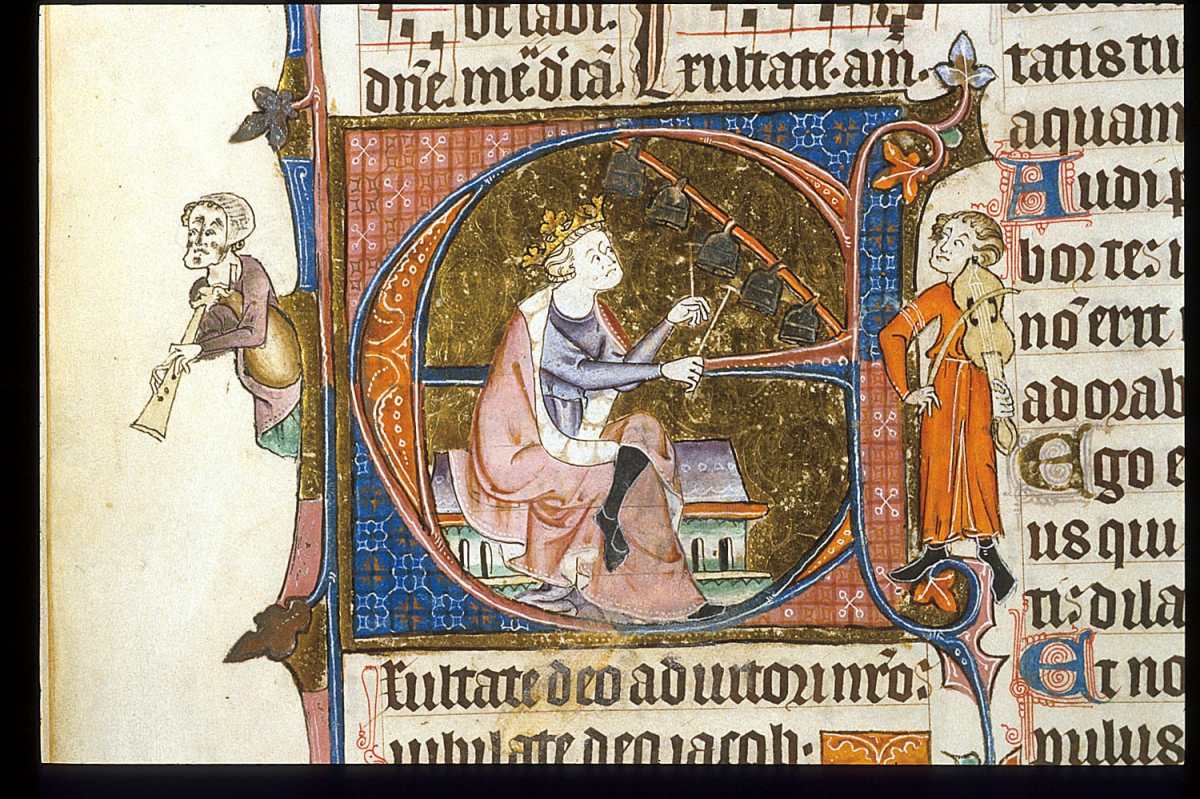 dn̄e. me. dcā. Exultate. am̄.
Exultate deo adiutori nr̄o:
iubilate deo iacob.
tatis tu
aquam
Audi p
bor tes: i
nō erit
adorab
Ego e
us qui
tis dila
Et no
pulus